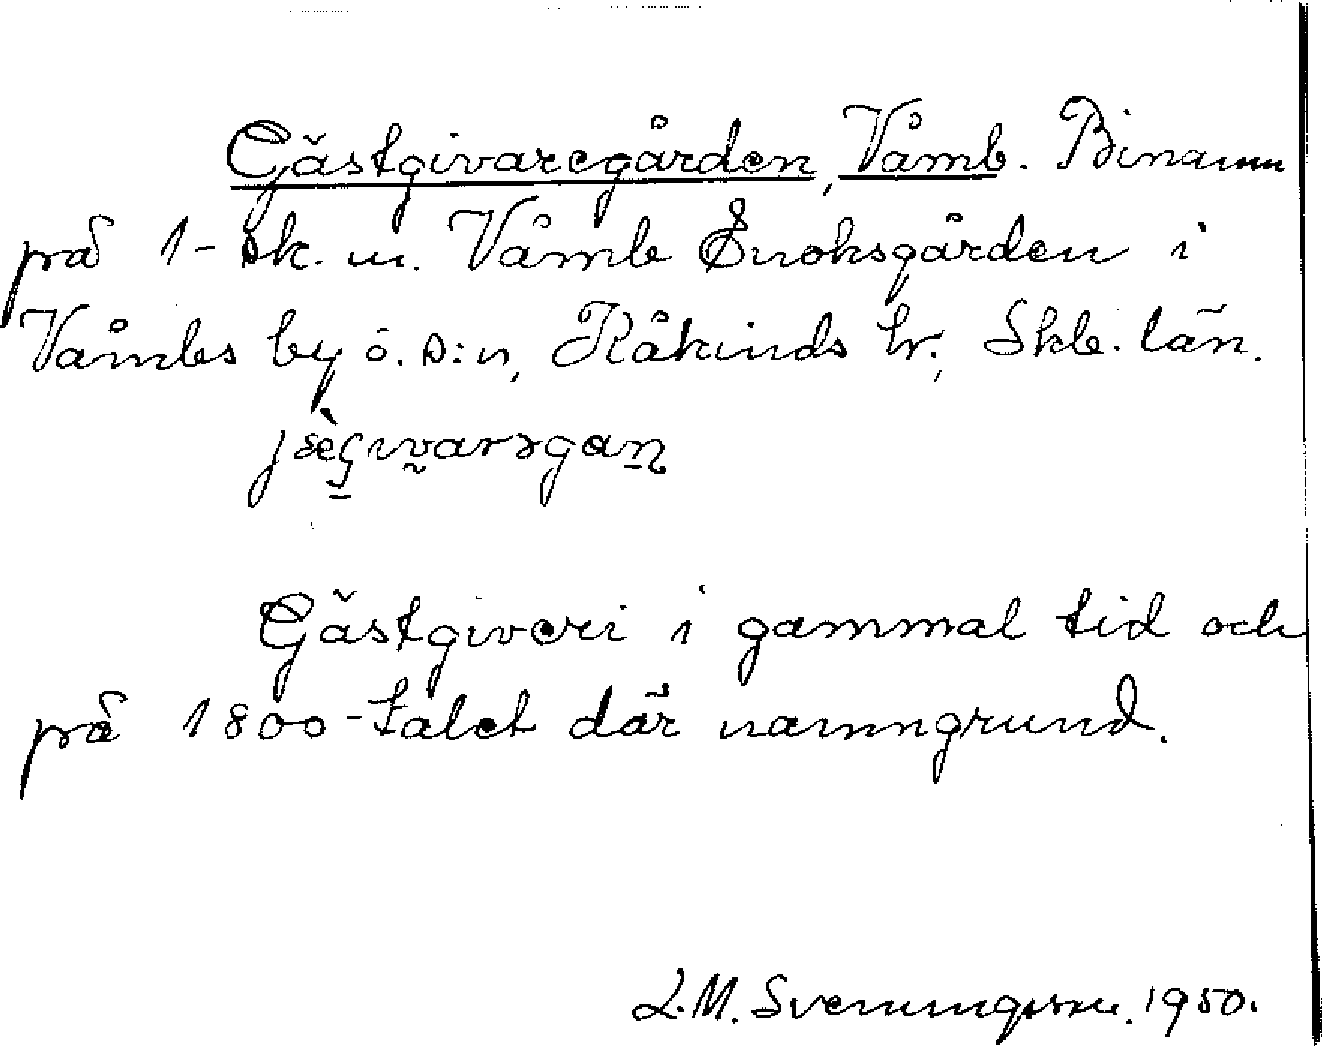 Gästgivaregården, Våmb. Binamn
på 1-sk. m. Våmb Enoksgården i
Våmbs by o. s:n, Kåkinds hr., Skb. län.
Gästgiveri i gammal tid och
på 1800-talet där namngrund.
L.M. Svenungsson. 1950.